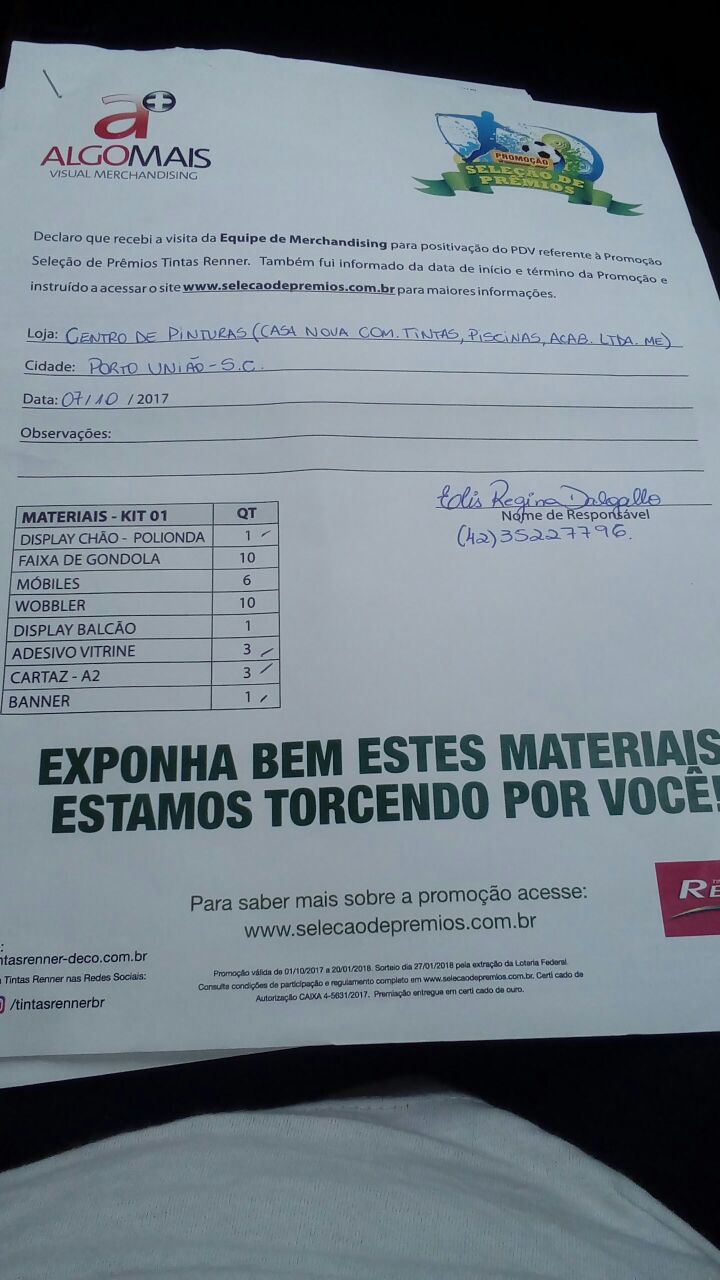 a+
ALGOMAIS
VISUAL MERCHANDISING
PROMOÇÃO
SELEÇÃO DE
PRÊMIOS
Declaro que recebi a visita da Equipe de Merchandising para positivação do PDV referente à Promoção
Seleção de Prêmios Tintas Renner. Também fui informado da data de início e término da Promoção e
instruído a acessar o site www.selecaodepremios.com.br para maiores informações.
Loja: CENTRO DE PINTURAS (CASA NOVA COM. TINTAS, PISCINAS, ACAB. LTDA. ME)
Cidade: PORTO UNIÃO - S.C.
Data: 07/10 / 2017
Observações:
Edis Regina Dalgallo
Nome de Responsável
(42) 35227796.
MATERIAIS - KIT 01 QT
DISPLAY CHÃO - POLIONDA 1
FAIXA DE GONDOLA 10
MÓBILES 6
WOBBLER 10
DISPLAY BALCÃO 1
ADESIVO VITRINE 3
CARTAZ - A2 3
BANNER 1
EXPONHA BEM ESTES MATERIAIS
ESTAMOS TORCENDO POR VOCÊ!
Para saber mais sobre a promoção acesse:
www.selecaodepremios.com.br
RE
:
ntasrenner-deco.com.br
Tintas Renner nas Redes Sociais:
/tintasrennerbr
Promoção válida de 01/10/2017 a 20/01/2018. Sorteio dia 27/01/2018 pela extração da Loteria Federal.
Consulte condições de participação e regulamento completo em www.selecaodepremios.com.br. Certi cado de
Autorização CAIXA 4-5631/2017. Premiação entregue em certi cado de ouro.